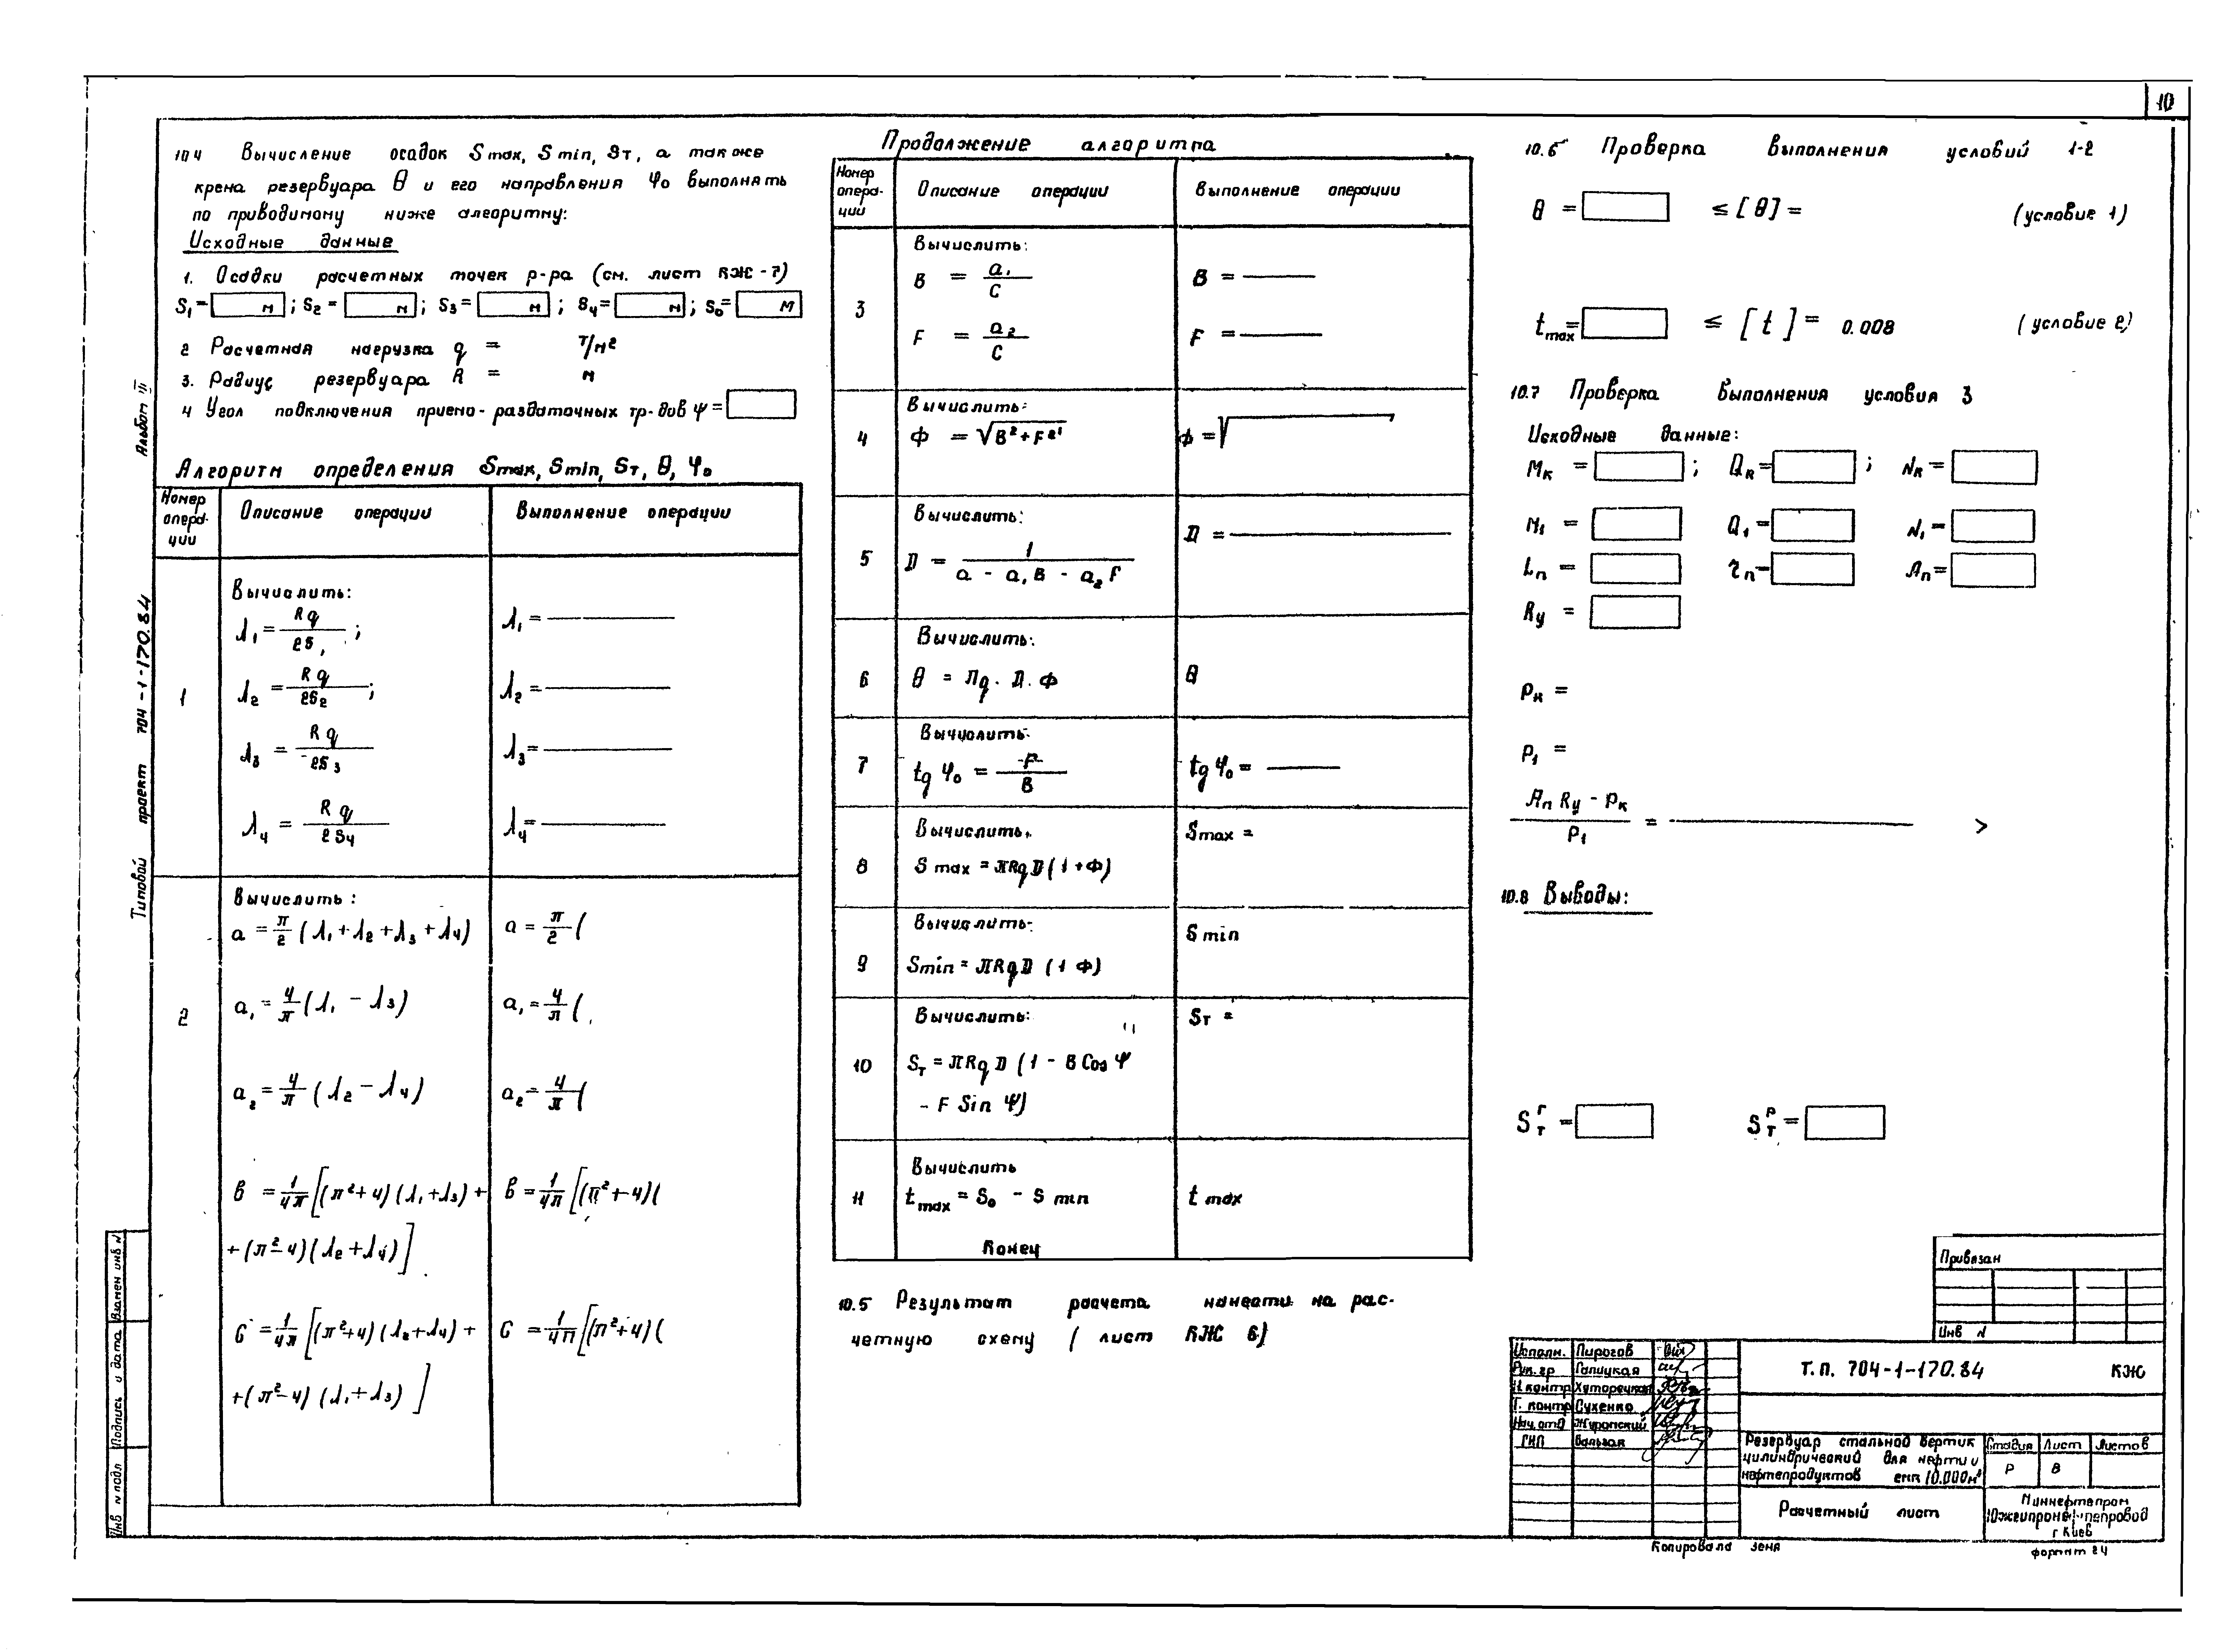 10
10.4 Вычисление осадок Smax, Smin, Sт, а также
крена резервуара θ и его направления φ₀ выполнять
по приводимому ниже алгоритму:
Исходные данные
1. Осадки расчетных точек р-ра (см. лист КЖ-7)
S₁= м ; S₂= м ; S₃= м ; S₄= м ; S₀= м
2 Расчетная нагрузка q = т/м²
3. Радиус резервуара R = м
4 Угол подключения приемо-раздаточных тр-дов ψ =
Алгоритм определения Smax, Smin, Sт, θ, φ₀
Номер опера-ции
Описание операции
Выполнение операции
1
Вычислить:
λ₁ = Rq / 2S₁ ;
λ₁ =
λ₂ = Rq / 2S₂ ;
λ₂ =
λ₃ = Rq / 2S₃
λ₃ =
λ₄ = Rq / 2S₄
λ₄ =
2
Вычислить:
a = π/2 (λ₁ + λ₂ + λ₃ + λ₄)
a = π/2 (
a₁ = 4/π (λ₁ − λ₃)
a₁ = 4/π (
a₂ = 4/π (λ₂ − λ₄)
a₂ = 4/π (
в = 1/4π [(π² + 4)(λ₁ + λ₃) +
+ (π² − 4)(λ₂ + λ₄)]
в = 1/4π [(π² + 4)(
С = 1/4π [(π² + 4)(λ₂ + λ₄) +
+ (π² − 4)(λ₁ + λ₃)]
С = 1/4π [(π² + 4)(
Продолжение алгоритма
Номер опера-ции
Описание операции
Выполнение операции
3
Вычислить:
B = a₁ / C
B =
F = a₂ / C
F =
4
Вычислить:
Ф = √B² + F²
Ф = √
5
Вычислить:
D = 1 / a − a₁B − a₂F
D =
6
Вычислить:
θ = πq · D · Ф
θ
7
Вычислить:
tg φ₀ = F / B
tg φ₀ =
8
Вычислить.
S max = πRqD (1 + Ф)
Smax =
9
Вычислить:
Smin = πRqD (1 Ф)
S min
10
Вычислить:
Sт = πRqD (1 − B Cos ψ
− F Sin ψ)
Sт =
11
Вычислить
tmax = S₀ − S min
t max
Конец
10.5 Результат расчета нанести на рас-
четную схему (лист КЖ 6)
10.6 Проверка выполнения условий 1-2
θ = ≤ [θ] = (условие 1)
tmax= ≤ [t] = 0.008 (условие 2)
10.7 Проверка выполнения условия 3
Исходные данные:
Mк = ; Qк = ; Nк =
M₁ = Q₁ = N₁ =
Lп = rп = Aп =
Rу =
Pк =
P₁ =
Aп Rу − Pк / P₁ = >
10.8 Выводы:
Sтг = Sтр =
Привязан
Инв N
Исполн. Пирогов
Рук. гр Галицкая
Н контр
Т. контр Сухенко
Нач. отд
ГИП
Т.П. 704-1-170.84 КЖ
Резервуар стальной вертик
цилиндрический для нефти и
нефтепродуктов емк 10.000м³
Стадия Лист Листов
Р 8
Расчетный лист
Миннефтепром
Южгипронефтепровод
г Киев
Копировала Зеня
формат 24
Альбом III
Типовой проект 704-1-170.84
Взамен инв N
Подпись и дата
Инв N подл